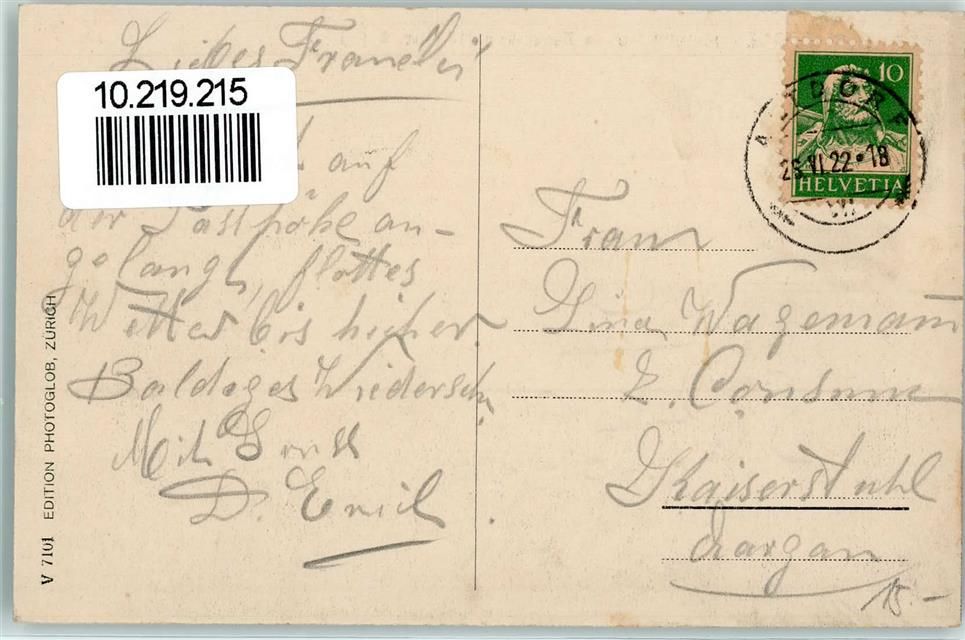 Liebes Fraueli
10.219.215
auf
der Passhöhe an-
gelangt, flottes
Wetter bis hieher
Baldiges Wiedersehn
Mit Gruss
D. Emil
V 7101 EDITION PHOTOGLOB, ZÜRICH
10
HELVETIA
ALTDORF
26.VI.22-18
Frau
Lina Wagemann
z. Consum
Kaiserstuhl
Aargau
15.-